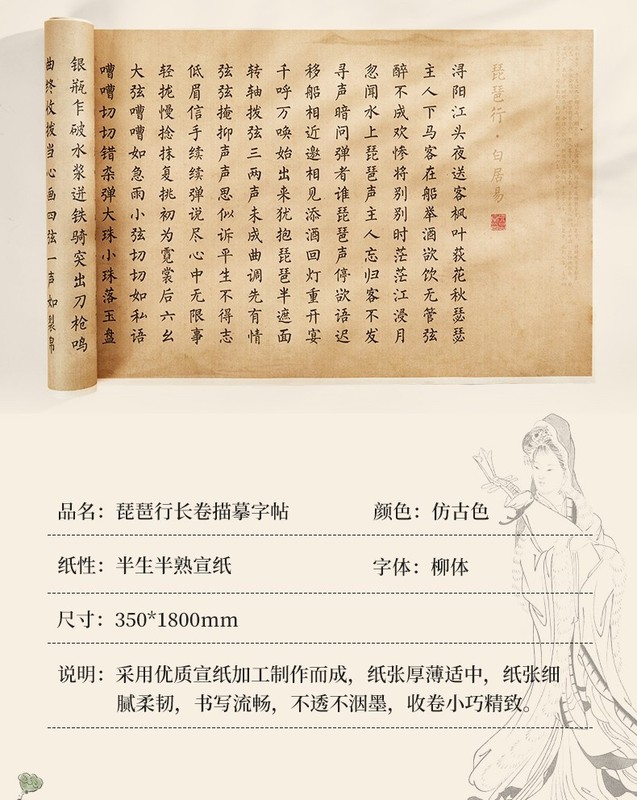 琵琶行·白居易
浔阳江头夜送客枫叶荻花秋瑟瑟
主人下马客在船举酒欲饮无管弦
醉不成欢惨将别别时茫茫江浸月
忽闻水上琵琶声主人忘归客不发
寻声暗问弹者谁琵琶声停欲语迟
移船相近邀相见添酒回灯重开宴
千呼万唤始出来犹抱琵琶半遮面
转轴拨弦三两声未成曲调先有情
弦弦掩抑声声思似诉平生不得志
低眉信手续续弹说尽心中无限事
轻拢慢捻抹复挑初为霓裳后六幺
大弦嘈嘈如急雨小弦切切如私语
嘈嘈切切错杂弹大珠小珠落玉盘
银瓶乍破水浆迸铁骑突出刀枪鸣
曲终收拨当心画四弦一声如裂帛
品名：琵琶行长卷描摹字帖 颜色：仿古色
纸性：半生半熟宣纸 字体：柳体
尺寸：350*1800mm
说明：采用优质宣纸加工制作而成，纸张厚薄适中，纸张细
腻柔韧，书写流畅，不透不洇墨，收卷小巧精致。